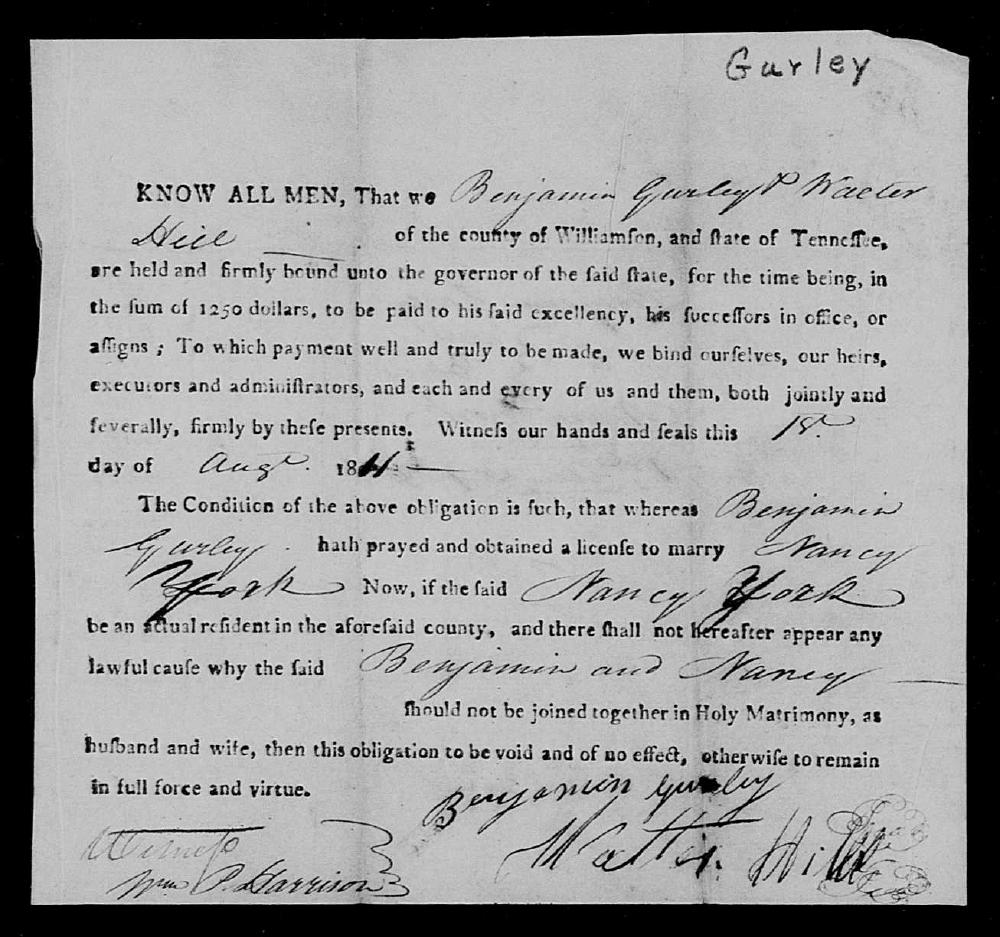 Gurley
KNOW ALL MEN, That we Benjamin Gurley & Walter
Hill of the county of Williamſon, and ſtate of Tenneſſee,
are held and firmly bound unto the governor of the ſaid ſtate, for the time being, in
the ſum of 1250 dollars, to be paid to his ſaid excellency, his ſucceſſors in office, or
aſſigns ; To which payment well and truly to be made, we bind ourſelves, our heirs,
executors and adminiſtrators, and each and every of us and them, both jointly and
ſeverally, firmly by theſe preſents. Witneſs our hands and ſeals this
day of Augt. 1811
The Condition of the above obligation is ſuch, that whereas Benjamin
Gurley hath prayed and obtained a licenſe to marry Nancy
York Now, if the ſaid Nancy York
be an actual reſident in the aforeſaid county, and there ſhall not hereafter appear any
lawful cauſe why the ſaid Benjamin and Nancy
ſhould not be joined together in Holy Matrimony, as
huſband and wife, then this obligation to be void and of no effect, otherwiſe to remain
in full force and virtue.
Benjamin Gurley
Walter Hill
Witneſs
Wm P. Harrison